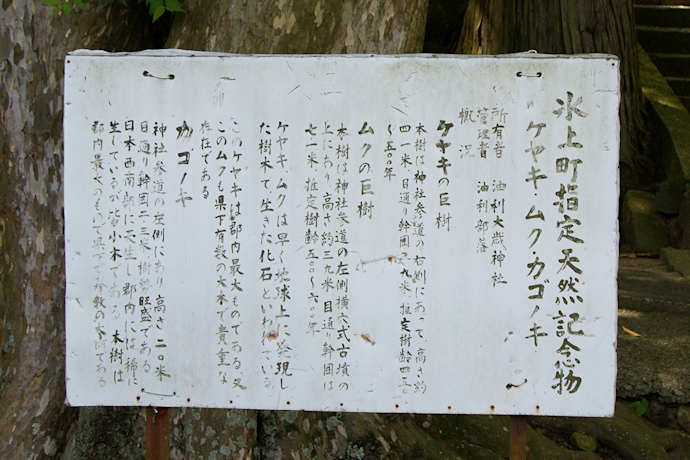 氷上町指定天然記念物
ケヤキ・ムク・カゴノキ
所有者 油利大歳神社
管理者 油利部落
概況
ケヤキの巨樹
本樹は神社参道の右側にあって、高さ約
四一米、目通り幹囲 九米、推定樹齢四五〇
〜五〇〇年
ムクの巨樹
本樹は神社参道の左側横穴式古墳の
上にあり、高さ約三九米、目通り幹囲は
七一米、推定樹齢五〇〇〜六〇〇年
ケヤキ、ムクは早く地球上に発現し
た樹木で、生きた化石といわれている
このケヤキは郡内最大ものである。又
このムクも県下有数の大木で貴重な
存在である
カゴノキ
神社参道の左側にあり、高さ二〇米
目通り幹囲二・三米、樹勢旺盛である
日本西南部に天生し、郡内には稀に
生しているが皆小木である。本樹は
郡内最大のもので県下 有数の本樹である